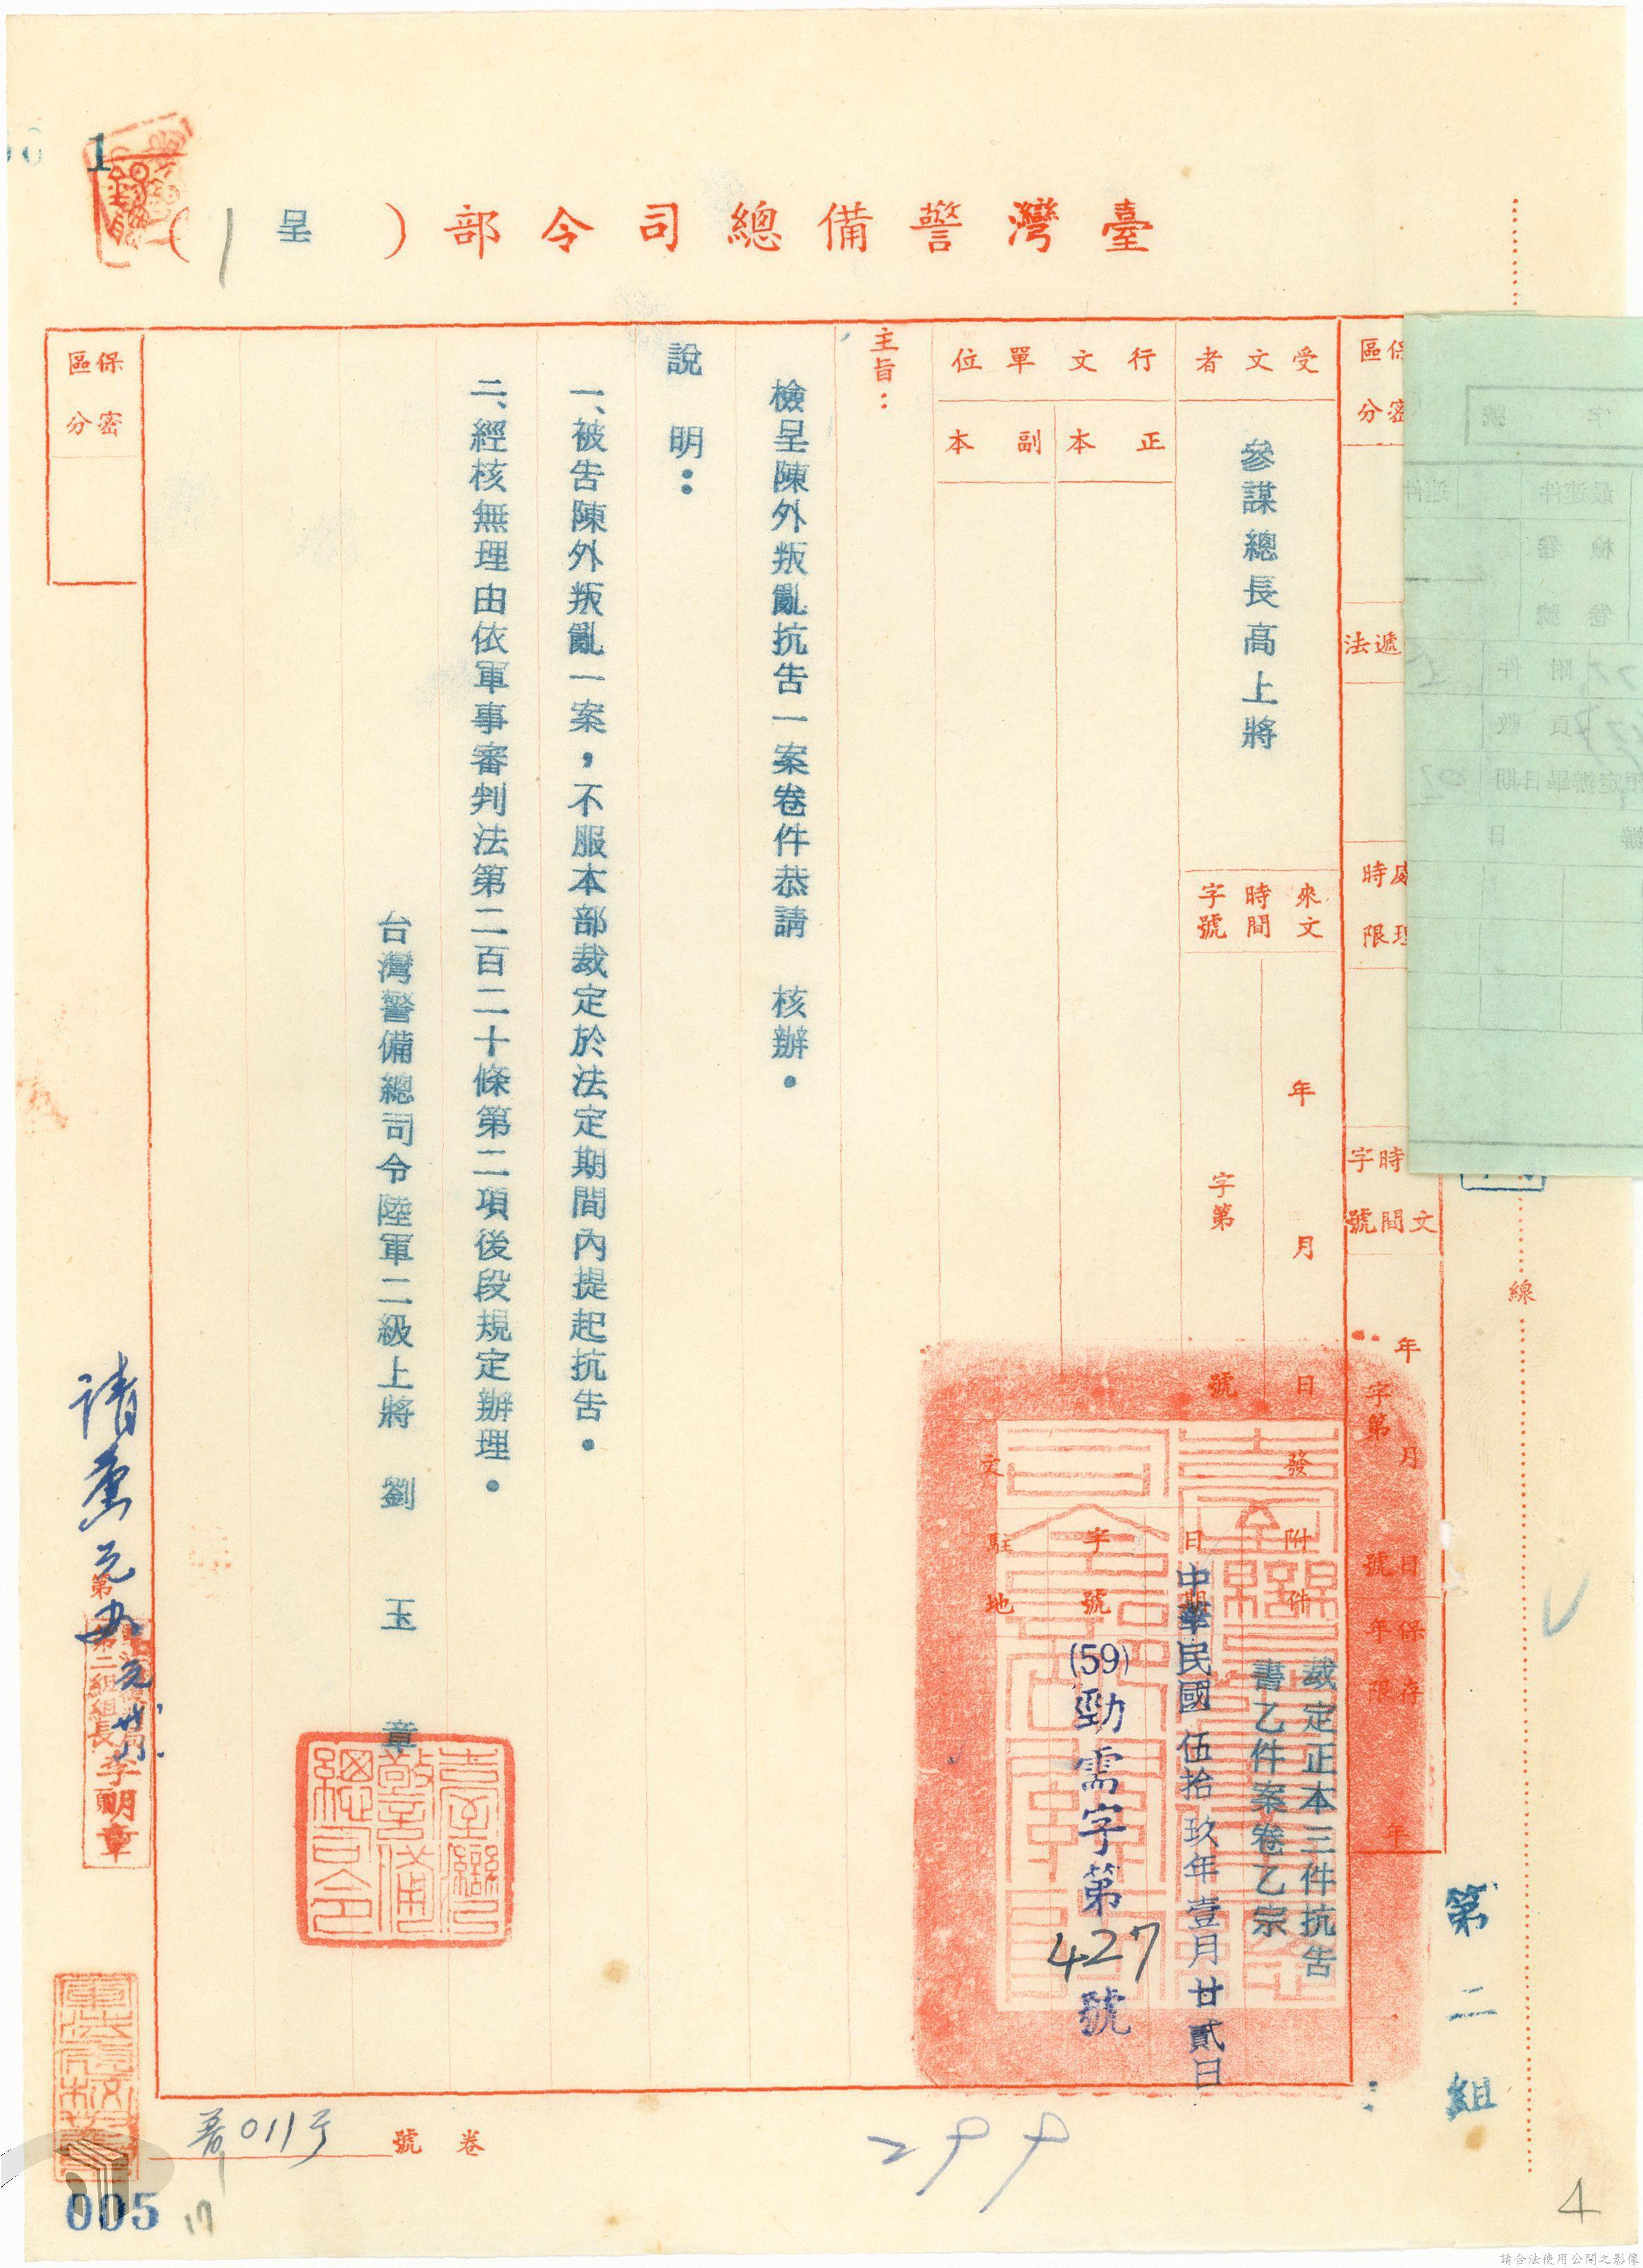 1
臺灣警備總司令部（呈）
保密區分
受文者
參謀總長高上將
來文時間字號
年月日
字第號
行文單位
正本
副本
發文
附件
裁定正本三件抗告
書乙件案卷乙宗
日期
中華民國伍拾玖年壹月廿貳日
字號
(59)勁需字第427號
駐地
主旨：
檢呈陳外叛亂抗告一案卷件恭請　核辦。
說明：
一、被告陳外叛亂一案，不服本部裁定於法定期間內提起抗告。
二、經核無理由依軍事審判法第二百二十條第二項後段規定辦理。
台灣警備總司令陸軍二級上將　劉玉章
臺灣警備總司令
保密區分
處理時限
時間
字號
年月日
字第號
保存年限
年
線
第二組
第二組組長李明章
卷號
299
005
17
4
請合法使用公開之影像